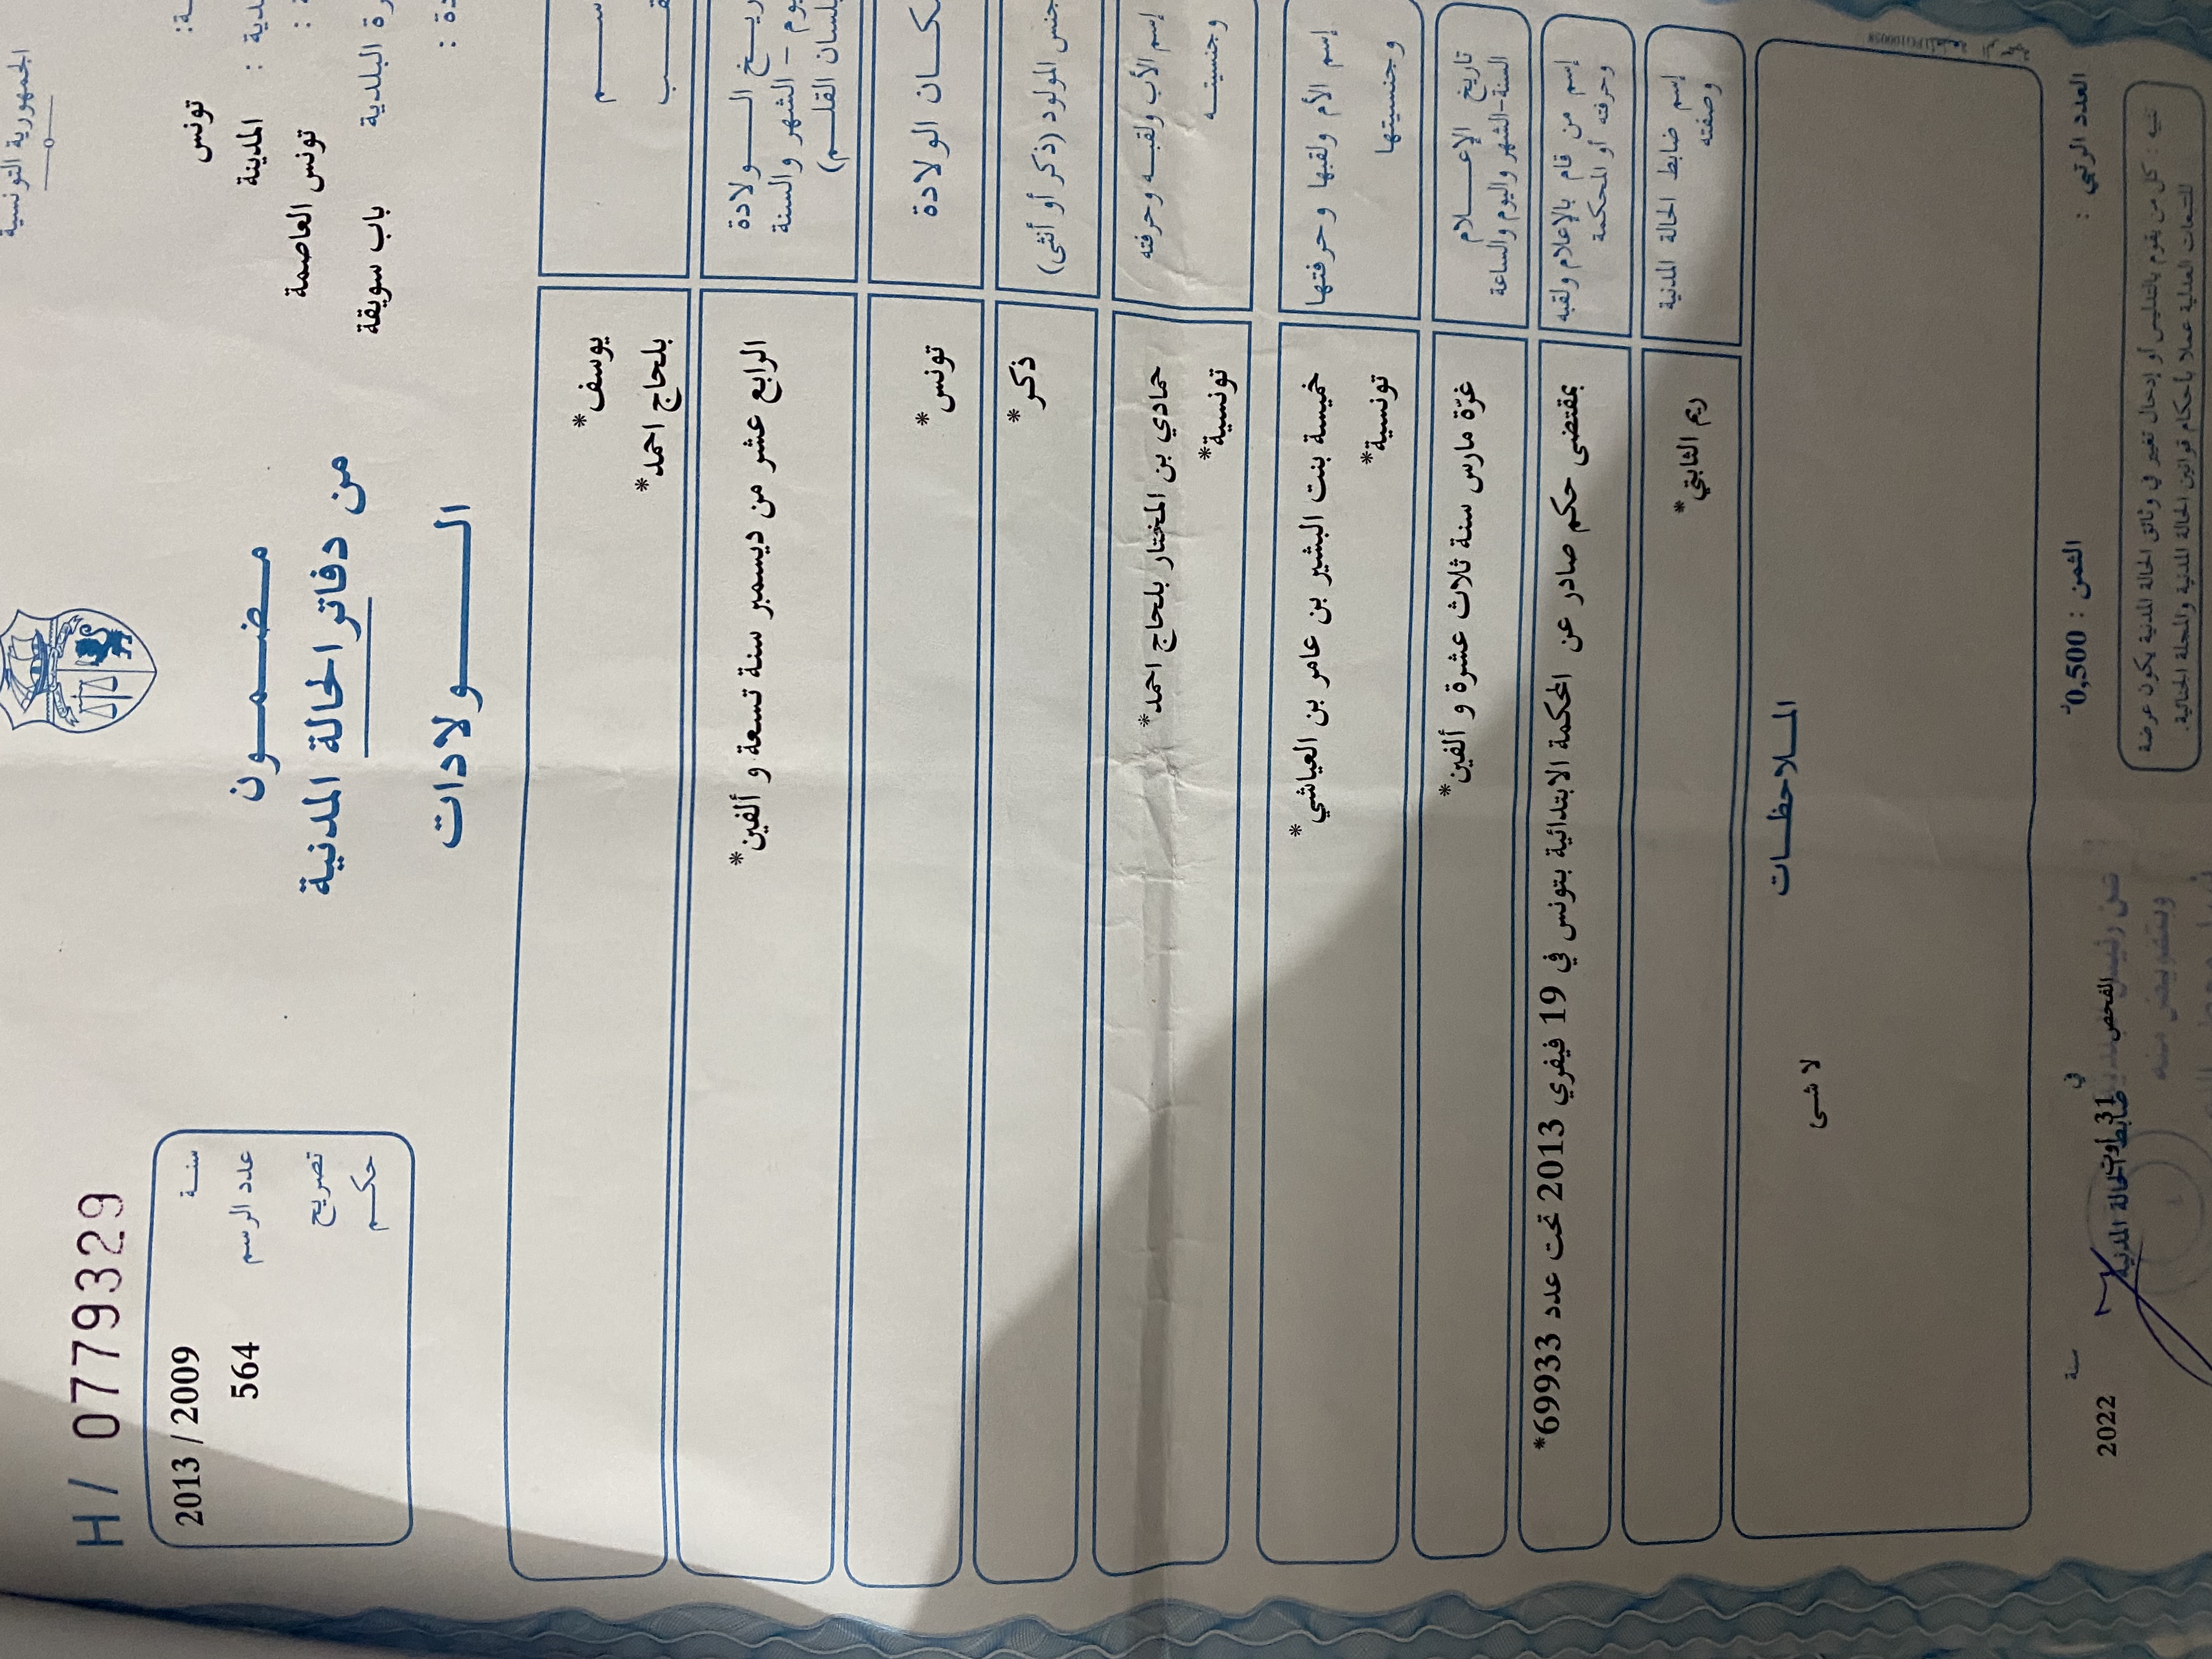 الجمهورية التونسية
H / 0779329
سنة 2013 / 2009
عدد الرسم 564
تصريح
حكم
مضمون
من دفاتر الحالة المدنية
الولادات
تونس
المدينة
تونس العاصمة
باب سويقة
يوسف*
بلحاج احمد*
الولادة
الرابع عشر من ديسمبر سنة تسعة و ألفين*
الشهر والسنة
بلسان القلم)
الولادة تونس*
(ذكر أو أنثى) ذكر*
إسم الأب ولقبه وحرفته حمادي بن المختار بلحاج احمد*
وجنسيته تونسية*
إسم الأم ولقبها وحرفتها خميسة بنت البشير بن عامر بن العياشي*
وجنسيتها تونسية*
تاريخ الإعلام غرّة مارس سنة ثلاث عشرة و ألفين*
السنة-الشهر واليوم والساعة
إسم من قام بالإعلام ولقبه بمقتضى حكم صادر عن المحكمة الابتدائية بتونس في 19 فيفري 2013 تحت عدد 69933*
وحرفته أو المحكمة
إسم ضابط الحالة المدنية ريم الثابتي*
وصفته
الملاحظات
لا شى
العدد الرتبي :
الثمن : 0,500د
الفحص في 31 اوت سنة 2022
ضابط الحالة المدنية
تنبيه : كل من يقوم بالتدليس أو إدخال تغيير في وثائق الحالة المدنية يكون عرضة
للتتبعات العدلية عملا بأحكام قوانين الحالة المدنية والمجلة الجنائية.